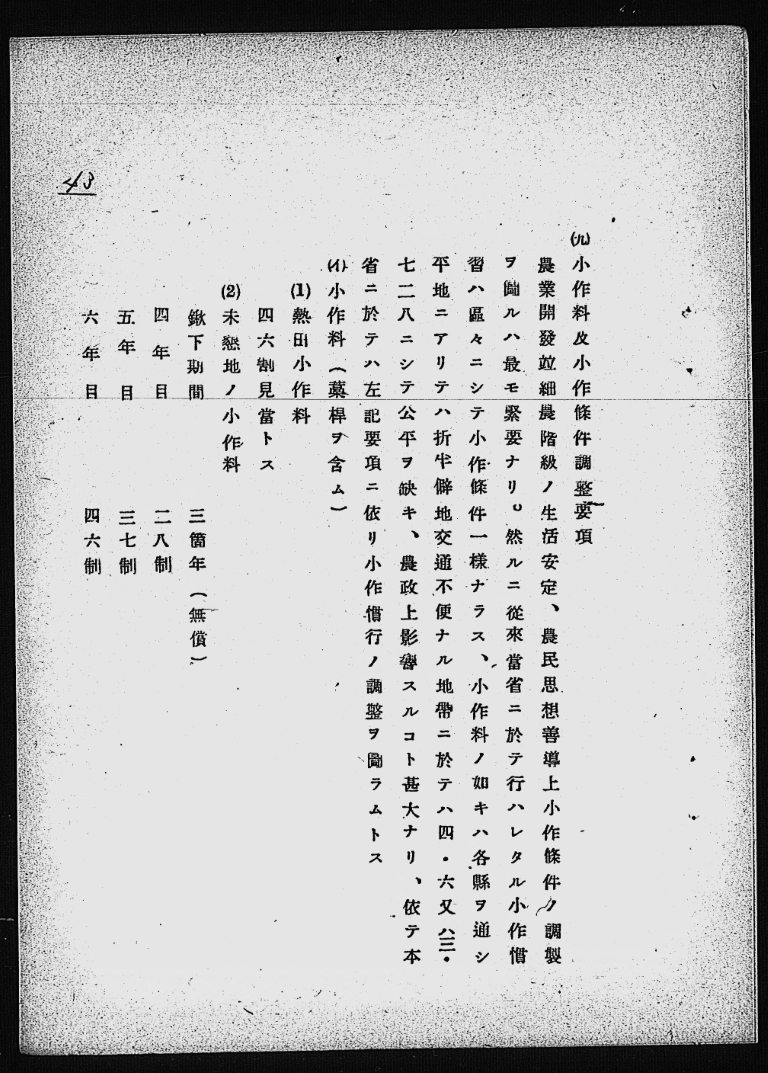 43
(九)小作料及小作條件調整要項
農業開發竝細農階級ノ生活安定、農民思想善導上小作條件ノ調製
ヲ圖ルハ最モ緊要ナリ。然ルニ從來當省ニ於テ行ハレタル小作慣
習ハ區々ニシテ小作條件一樣ナラス、小作料ノ如キハ各縣ヲ通シ
平地ニアリテハ折半僻地交通不便ナル地帶ニ於テハ四・六又ハ三・
七二八ニシテ公平ヲ缺キ、農政上影響スルコト甚大ナリ、依テ本
省ニ於テハ左記要項ニ依リ小作慣行ノ調整ヲ圖ラムトス
(イ)小作料(藁桿ヲ含ム)
(1)熱田小作料
四六割見當トス
(2)未懇地ノ小作料
鍬下期間 三箇年(無償)
四年目 二八制
五年目 三七制
六年目 四六制